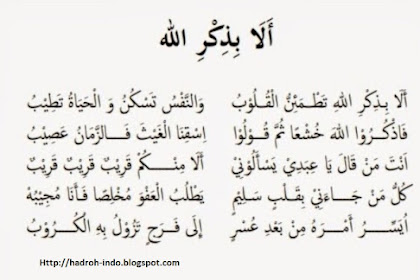 أَلَا بِذِكْرِ الله
أَلَا بِذِكْرِ اللهِ تَطْمَئِنُّ الْقُلُوْبُ وَالنَّفْسُ تَسْكُنُ وَ الْحَيَاةُ تَطِيْبُ
فَاذْكُرُوْا اللهَ خُشَّعًا ثُمَّ قُوْلُوْا اِسْقِنَا الْغَيْثَ فَالزَّمَانُ عَصِيْبُ
اَنْتَ مَنْ قَالَ يَا عِبَدِيْ يَسْأَلُوْنِيْ أَلَا مِنْكُمْ قَرِيْبٌ قَرِيْبٌ قَرِيْبٌ
كُلُّ مَنْ جَاءَنِيْ بِقَلْبٍ سَلِيْمٍ يَطْلُبُ الْعَفْوَ مُخْلِصًا فَأَنَا مُجِيْبُهُ
اُيَسِّرُ أَمْرَهُ مِنْ بَعْدِ عُسْرٍ إِلَى فَرَجٍ تَزُوْلُ بِهِ الْكُرُوْبُ
Http://hadroh-indo.blogspot.com